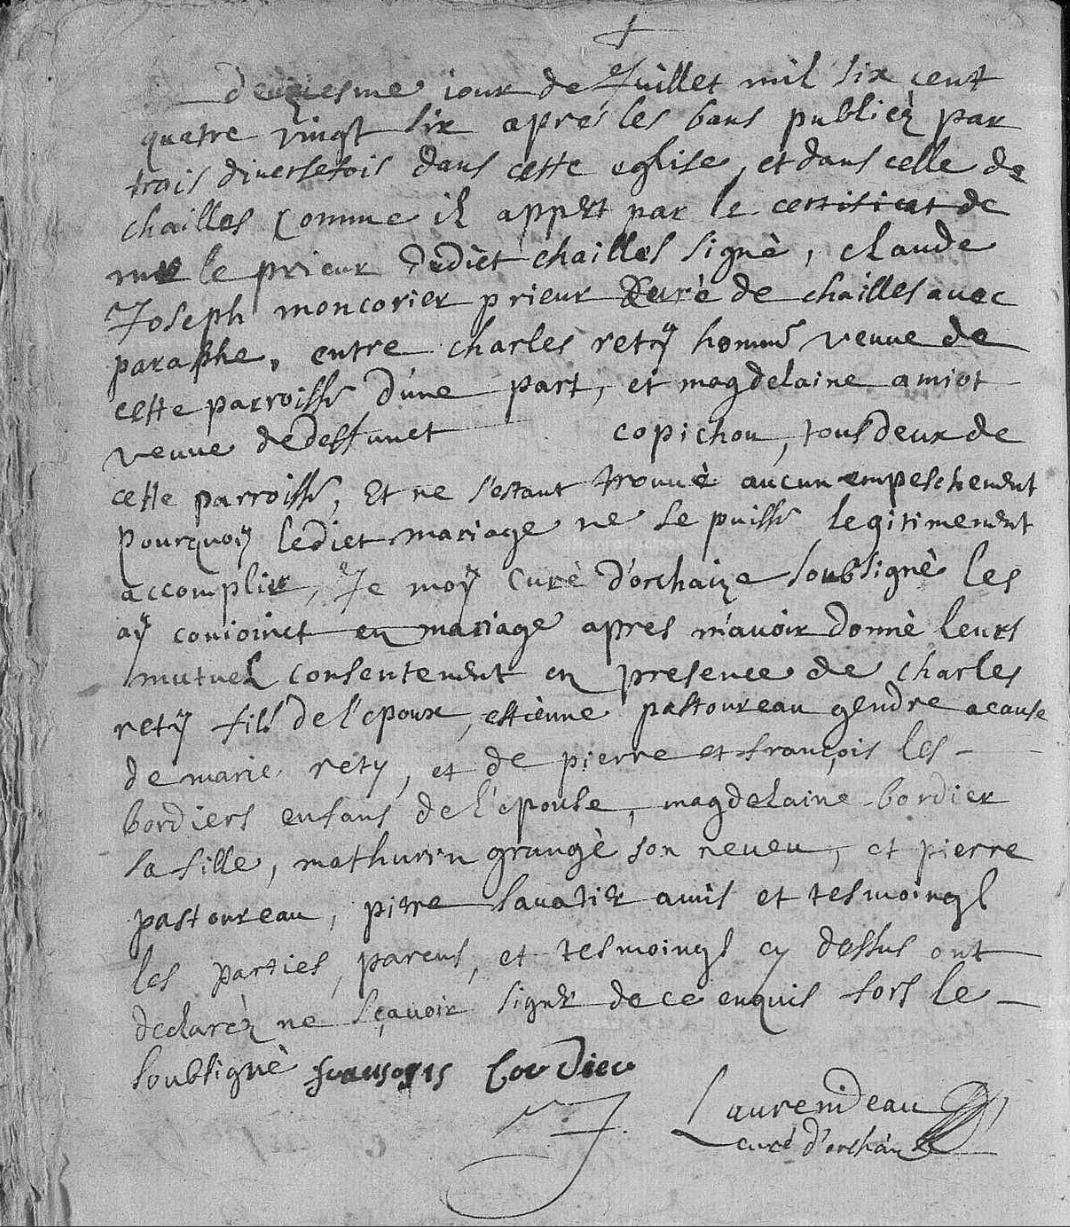 deuxiesme iour de Juillet mil six cent
quatre vingt six aprés les bans publiez par
trois diversefois dans cette eglise, et dans celle de
chailles comme il appert par le certificat de
mr le prieur dudict chailles signè, claude
Joseph moncorier prieur Curè de chailles avec
paraphe, entre charles rety homme veuve de
cette parroisse d'une part, et magdelaine amiot
veuve de deffunct copichon, tous deux de
cette parroisse, Et ne s'estant trouvè aucun empeschement
pourquoy ledict mariage ne se puisse legitimement
accomplir, Je moy Curè d'orchaize soubsignè les
ay conioinct en mariage apres m'avoir donnè leurs
mutuel consentement en presence de charles
rety fils de l'epoux, estienne pastoureau gendre a cause
de marie rety, et de pierre et françois les
bordiers enfans de l'epouse, magdelaine bordier
sa fille, mathurin grangè son neveu, et pierre
pastoureau, pierre savatier amis et tesmoings
les parties, parens, et tesmoings cy dessus ont
declarèz ne sçavoir signer de ce enquis fors le
soubsignè fransoys bordier
Laurendeau
curé d'orchaize